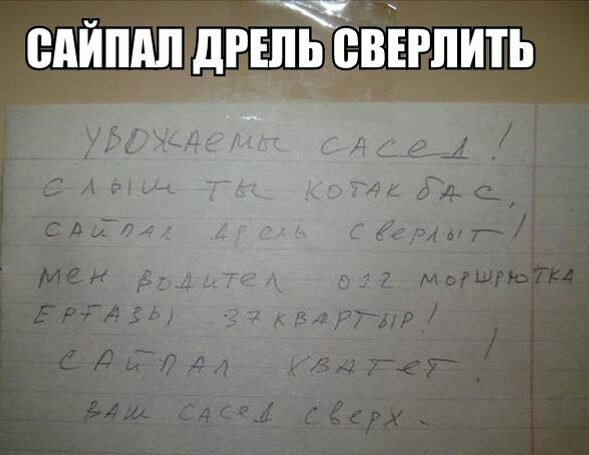 САЙПАЛ ДРЕЛЬ СВЕРЛИТЬ
УВОЖАЕМЫ САСЕД!
СЛЫШ ТЫ КОТАКБАС,
САЙПАЛ ДРЕЛЬ СВЕРЛЫТ!
МЕН ВОДИТЕЛ 012 МОРШРЮТКА
ЕРҒАЗЫ 37 КВАРТЫР!
САЙПАЛ ХВАТЕТ!
ВАШ САСЕД СВЕРХ.